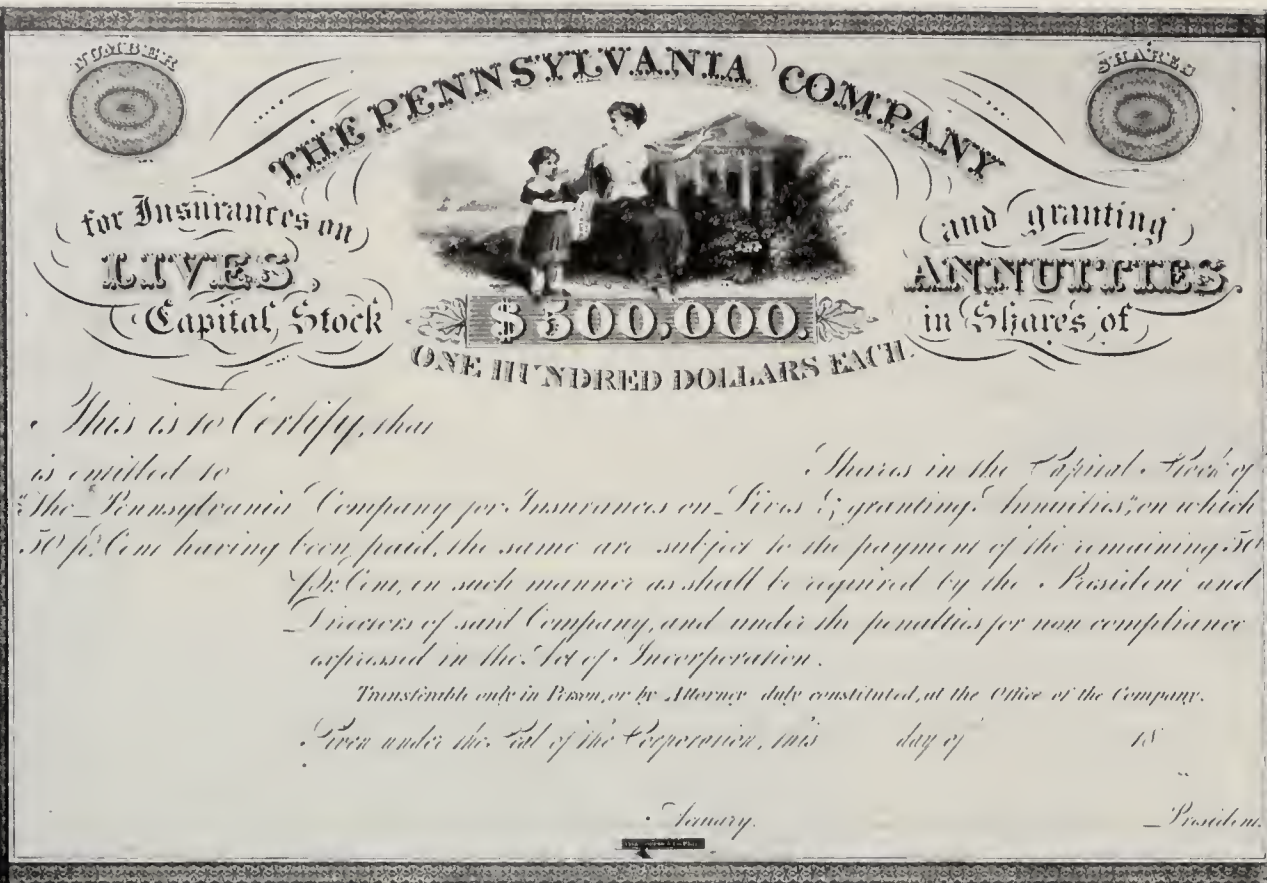 NUMBER
SHARES
THE PENNSYLVANIA COMPANY
for Insurances on
LIVES,
and granting
ANNUITIES.
Capital Stock
$500,000.
in Shares of
ONE HUNDRED DOLLARS EACH.
This is to Certify, that
is entitled to Shares in the Capital Stock of
"The Pennsylvania Company for Insurances on Lives & granting Annuities," on which
50 pr. Cent having been paid, the same are subject to the payment of the remaining 50
pr. Cent, in such manner as shall be required by the President and
Directors of said Company, and under the penalties for non compliance
expressed in the Act of Incorporation.
Transferable only in Person, or by Attorney duly constituted, at the Office of the Company.
Given under the Seal of the Corporation, this day of 18
President.